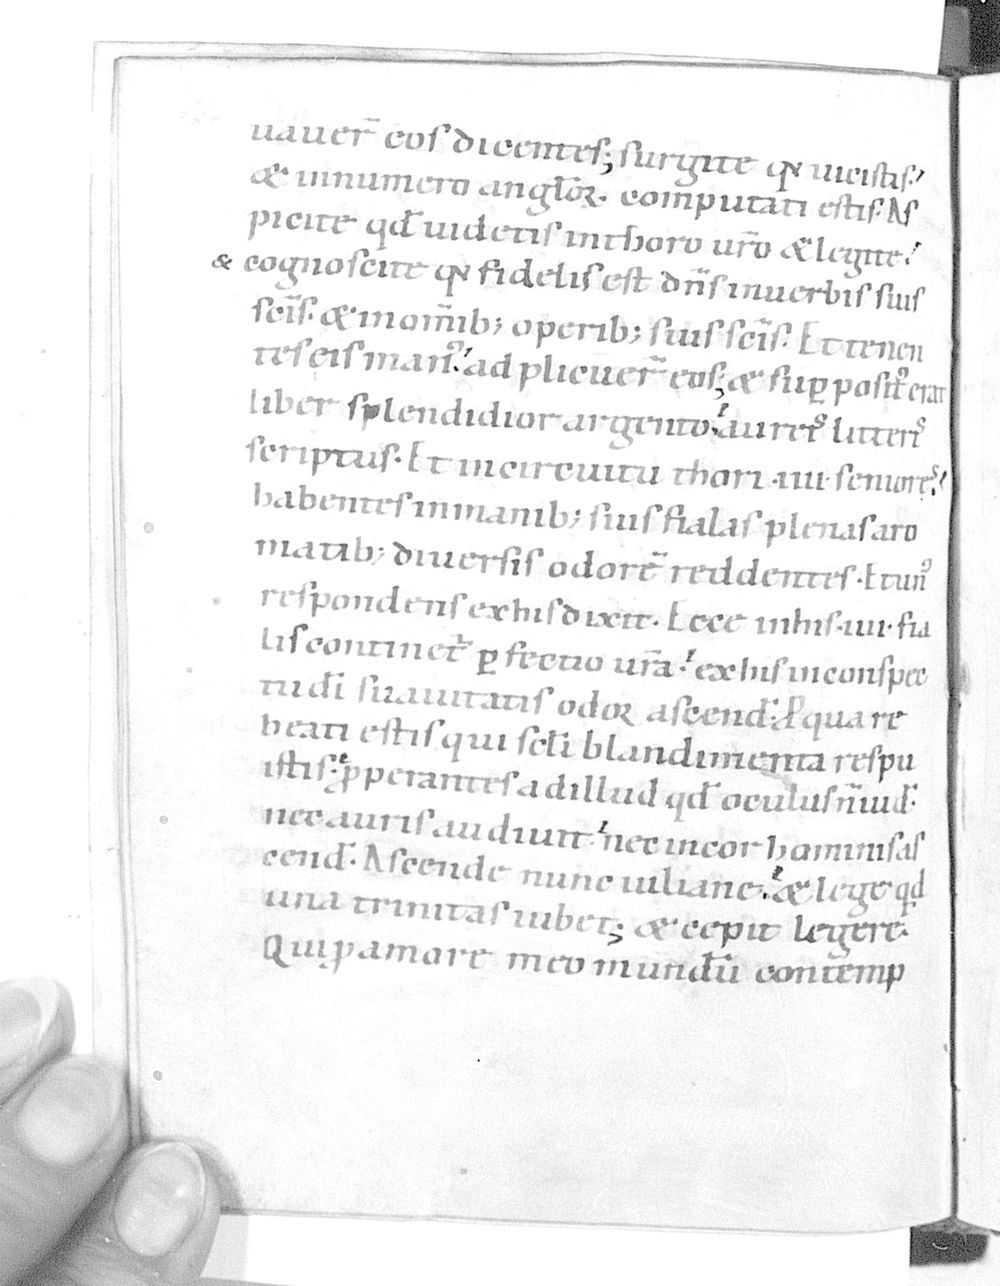 uauer̄ eos dicentes; surgite qꝛ uicistis.'
& innumero anglo̅ꝝ. computati estis. As
picite qd̄ uidetis inthoro ur̄o & legite.'
& cognoscite qꝛ fidelis est dn̄s inuerbis suis
sc̄is. & inom̄ib; operib; suis sc̄is. Et tenen
tes eis man᷒.' ad plicuer̄ eos; & suꝑ posit᷒ erat
liber splendidior argento.' aureis litteris
scriptus. Et incircuitu thori .iiii. seniores.'
habentes inmanib; suis fialas plenas aro
matib; diuersis odorē reddentes. Et un᷒
respondens exhis dixit. Ecce inhis .iiii. fia
lis continet᷑ ꝑfectio ur̄a.' ex his inconspec
tu dī suauitatis odor ascend̄. ꝓquare
beati estis qui sc̄li blandimenta respu
istis.' ꝓperantes ad illud qd̄ oculus n̄ uid̄.
nec auris audiuit.' nec incor hominis as
cend̄. Ascende nunc iuliane.' & lege qd̄
una trinitas iubet; & cepit legere.
Qui ꝓ amore meo mundū contemp